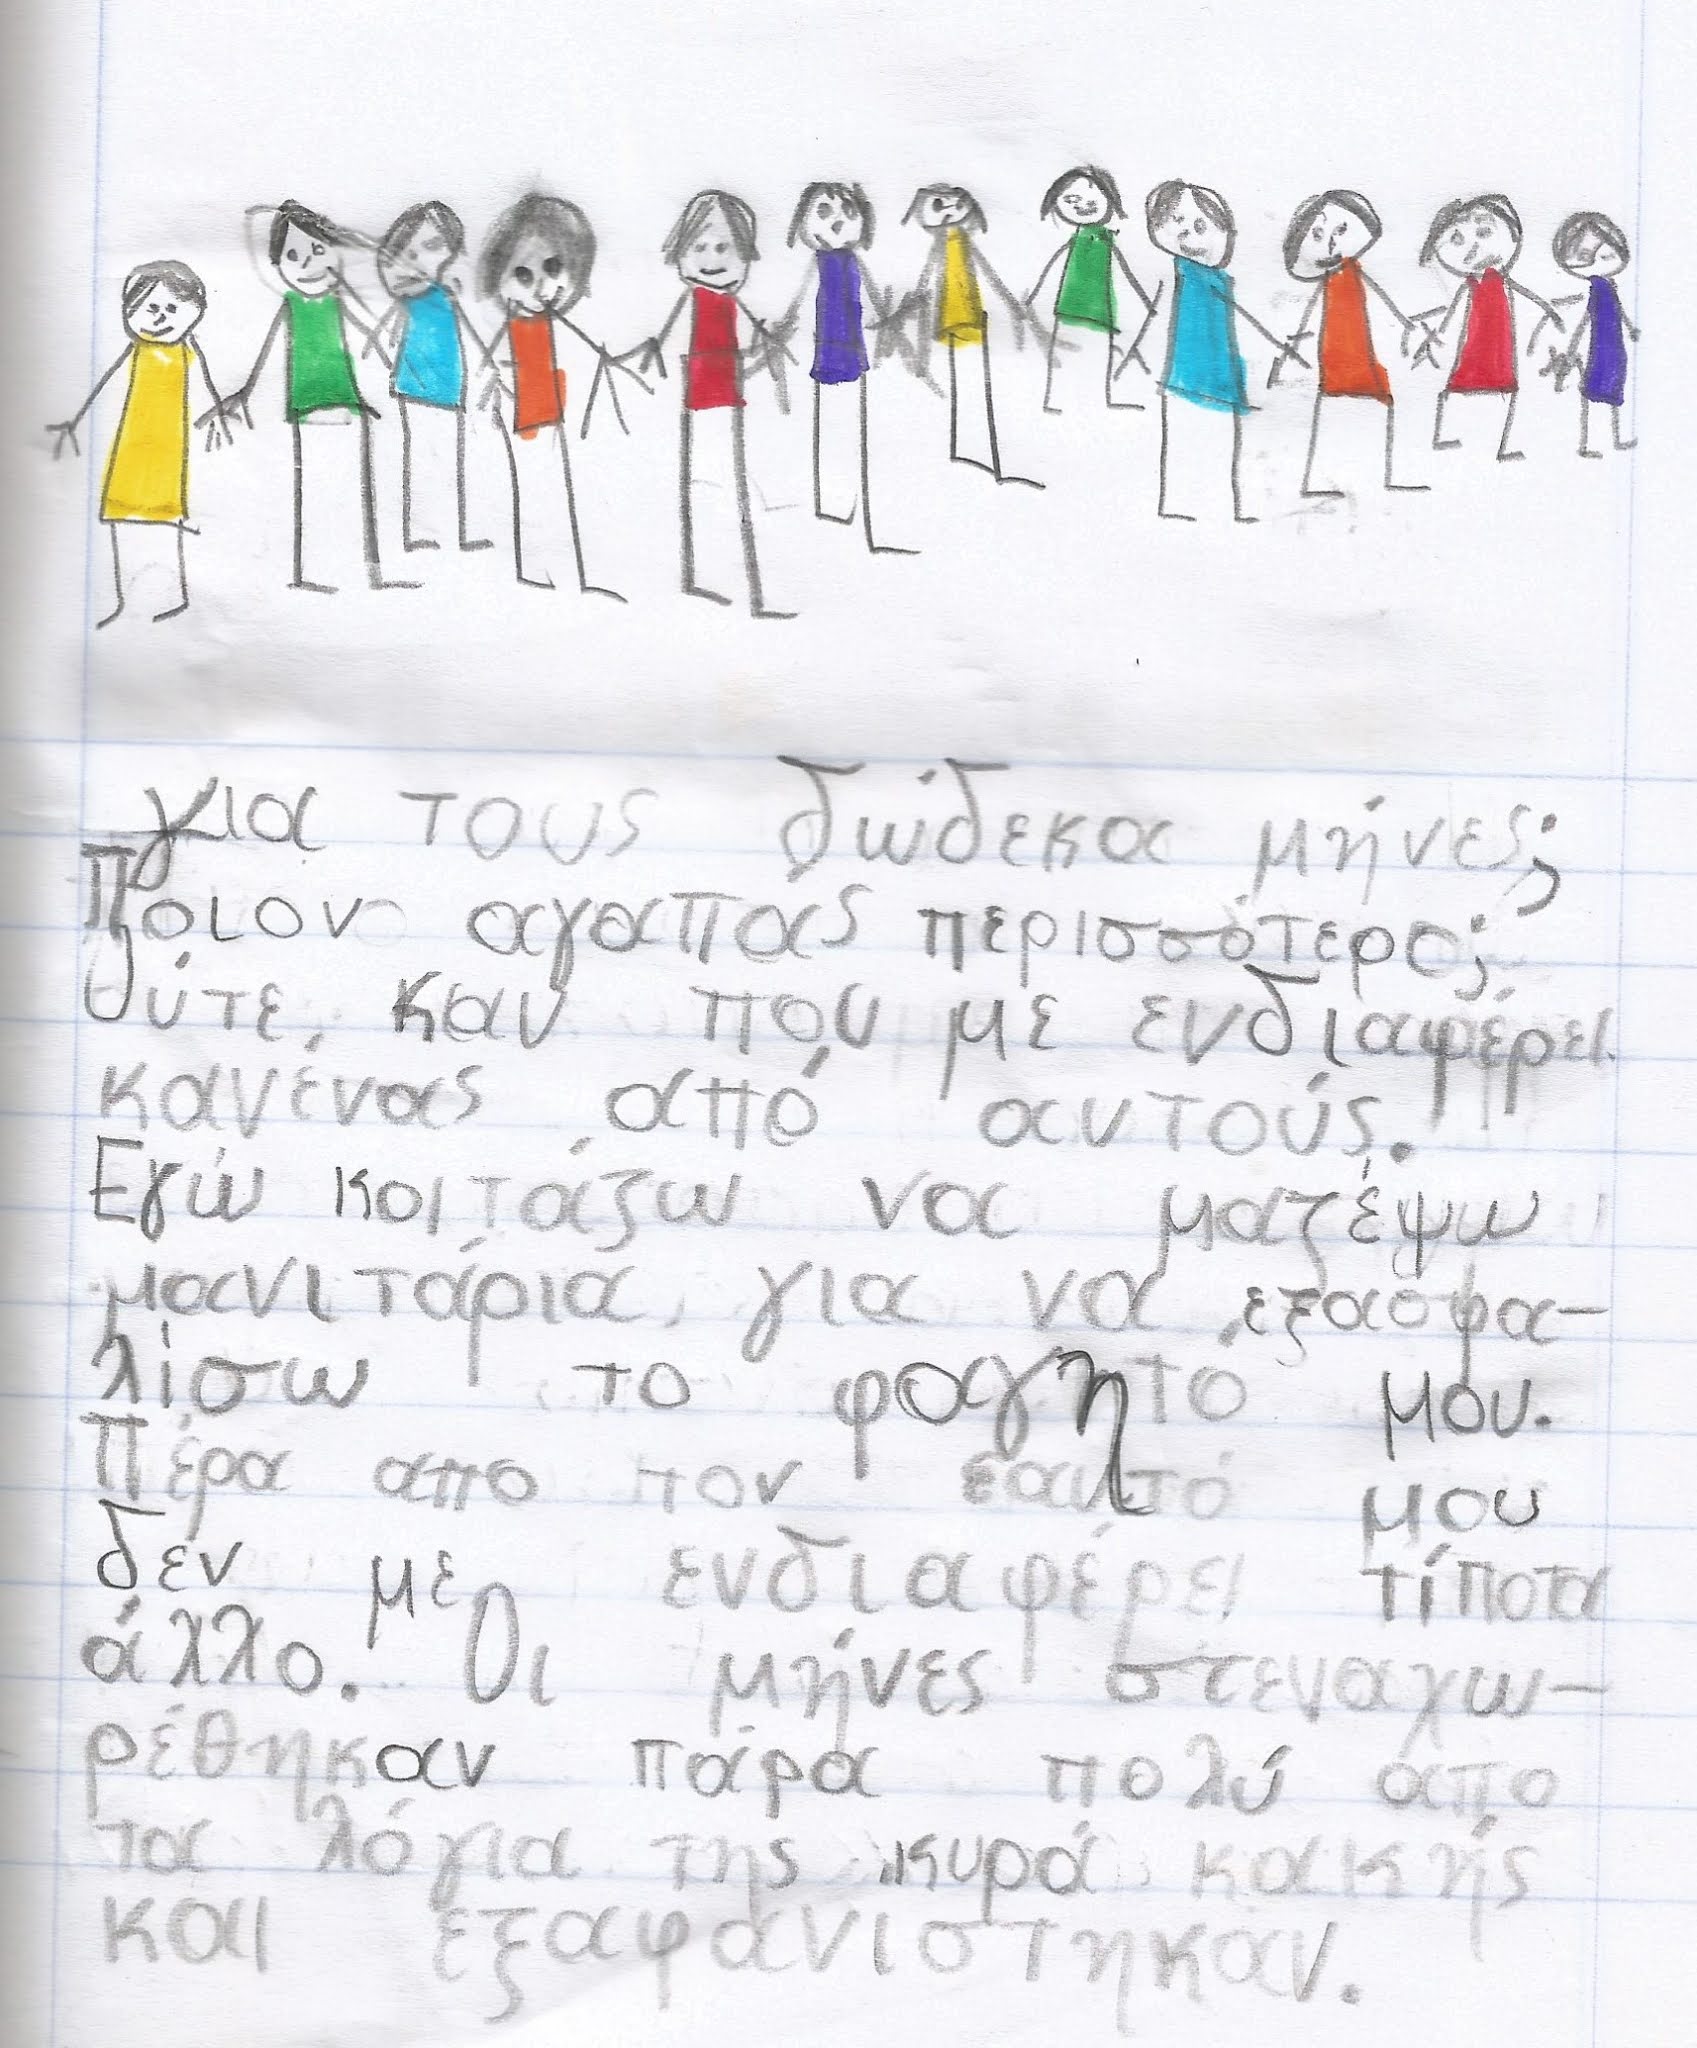 για τους δώδεκα μήνες;
Ποιον αγαπας περισσότερο;
Ούτε καν που με ενδιαφέρει
κανένας από αυτούς.
Εγώ κοιτάζω να μαζέψω
μανιτάρια για να εξασφα-
λίσω το φαγητό μου.
Πέρα απο τον εαυτό μου
δεν με ενδιαφέρει τίποτα
άλλο. Οι μήνες στεναχω-
ρέθηκαν πάρα πολύ απο
τα λόγια της κυρά κακής
και εξαφανιστηκαν.